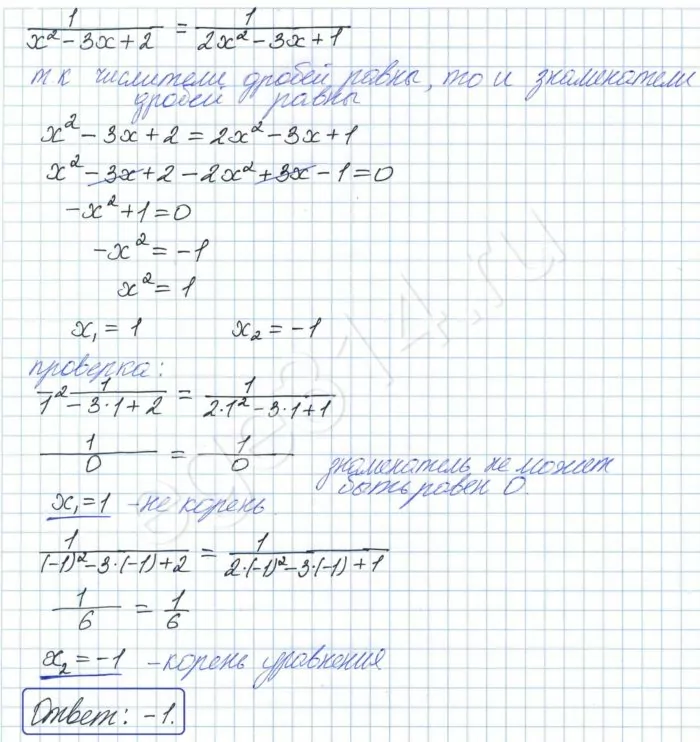 1/(x² - 3x + 2) = 1/(2x² - 3x + 1)
т к числители дробей равны, то и знаменатели
дробей равны
x² - 3x + 2 = 2x² - 3x + 1
x² - 3x + 2 - 2x² + 3x - 1 = 0
-x² + 1 = 0
-x² = -1
x² = 1
x₁ = 1 x₂ = -1
проверка:
1/(1² - 3·1 + 2) = 1/(2·1² - 3·1 + 1)
1/0 = 1/0 знаменатель не может
быть равен 0.
x₁ = 1 - не корень.
1/((-1)² - 3·(-1) + 2) = 1/(2·(-1)² - 3·(-1) + 1)
1/6 = 1/6
x₂ = -1 - корень уравнения
Ответ: -1.